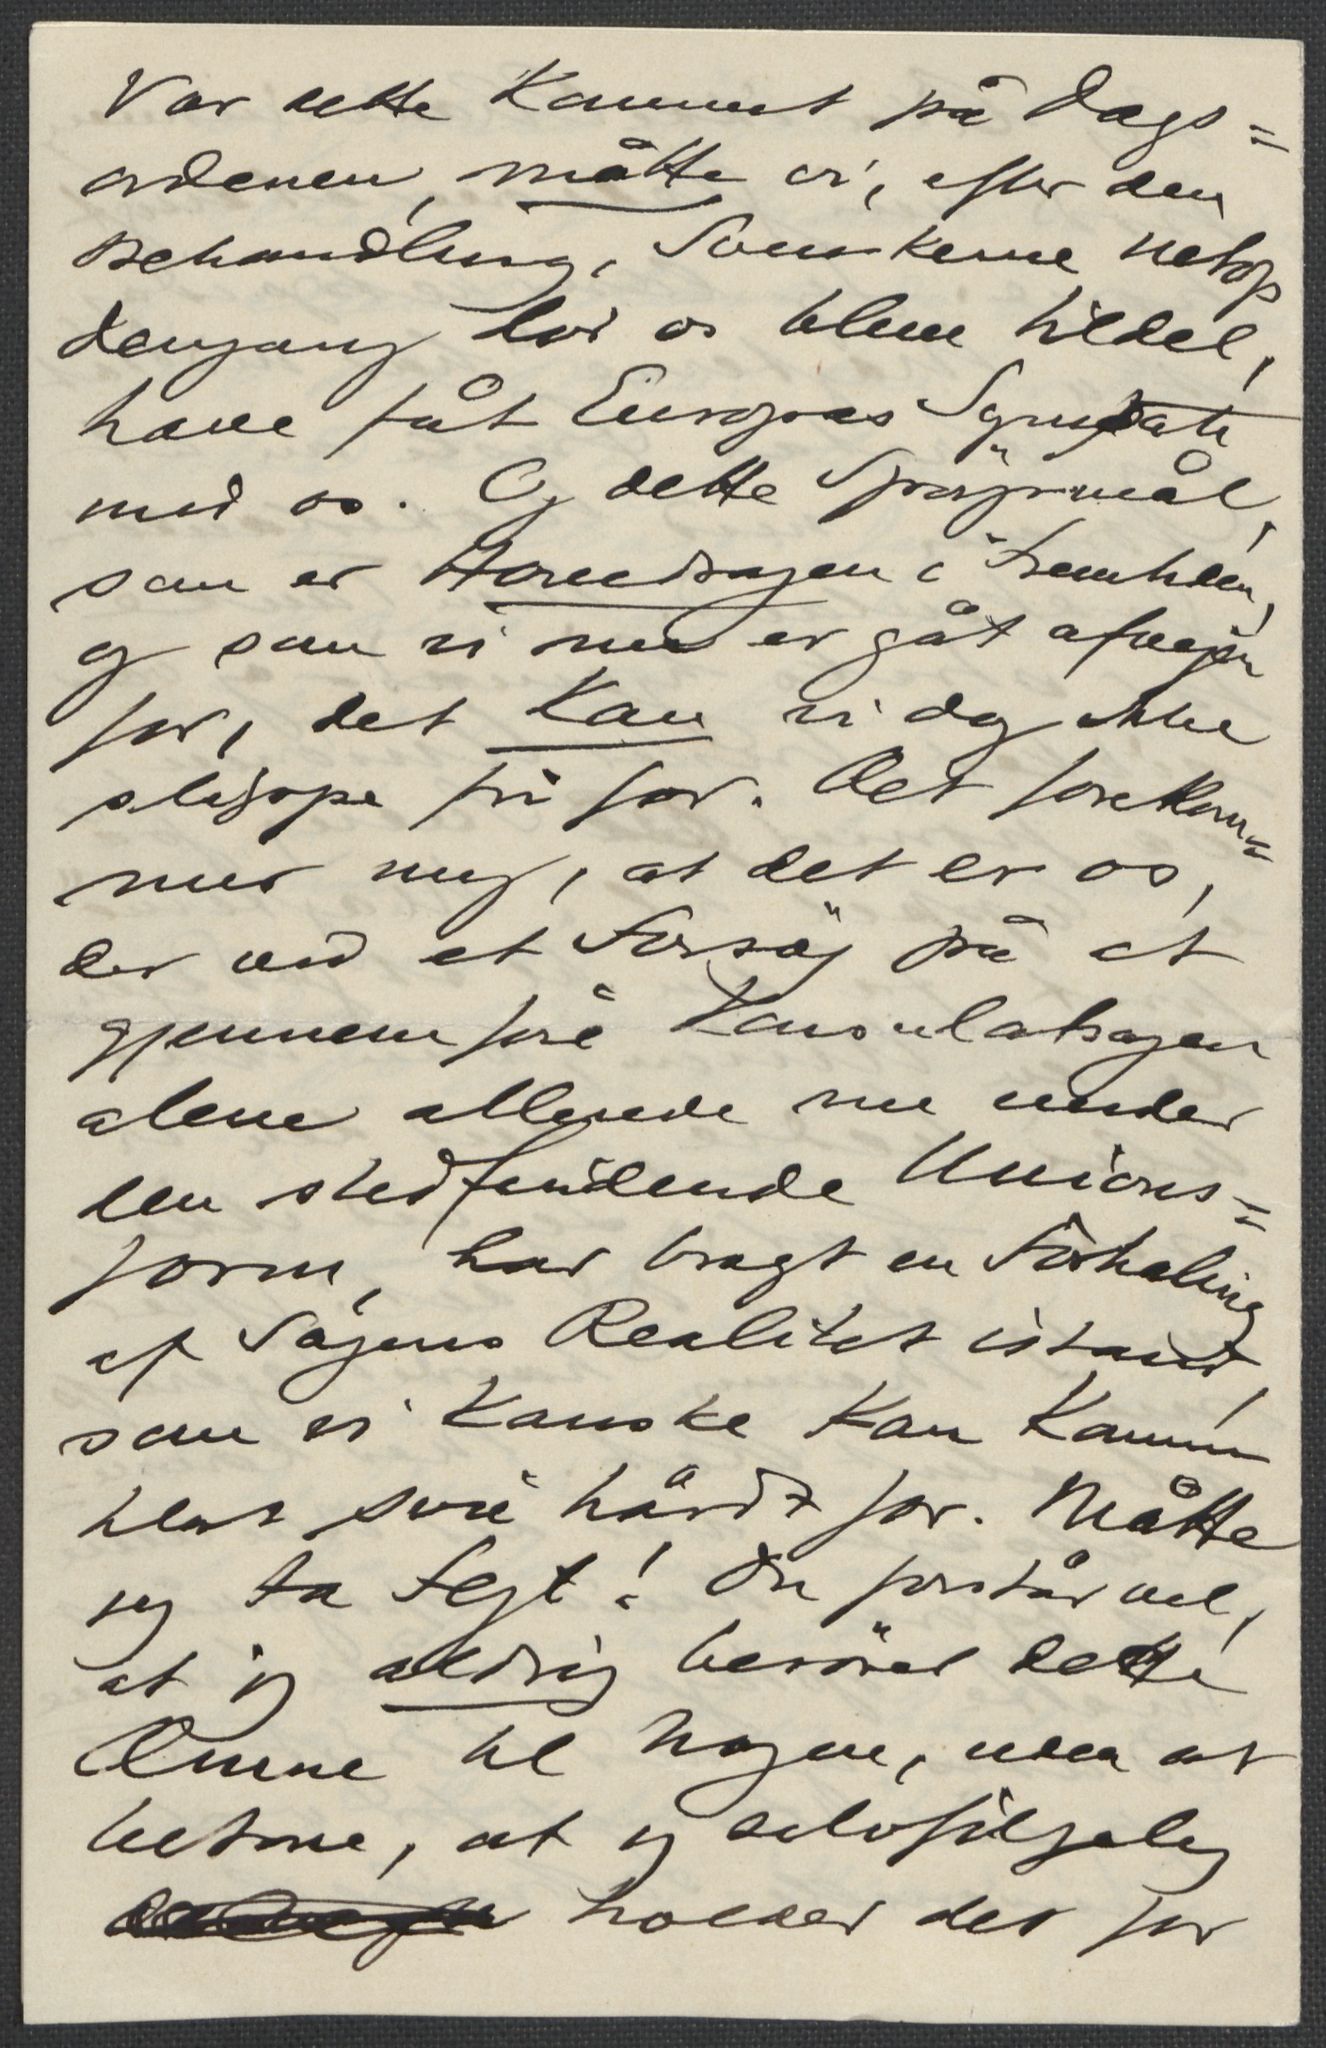 Var dette kommet på Dags=
ordenen, måtte vi, efter den
Behandling, Svenskerne netop
dengang lod os blive tildel,
have fåt Europas Sympati
med os. Og dette Spörgsmål,
som er Hovedsagen i Fremtiden,
og som vi nu er gåt afvejen
for, det kan vi dog ikke
slippe fri for. Det forekom=
mer mig, at det er os,
der ved et Forsög på at
gjennemföre Konsulatsagen
alene allerede nu under
den stedfindende Unions=
form, har bragt en Forhaling
af Sagens Realitet istand,
som vi kanske kan komme
til at svie hårdt for. Måtte
jeg ta Fejl! Du forstår vel,
at jeg aldrig berörer dette
Emne til Nogen, uden at
betone, at jeg selvfölgelig
holder det for